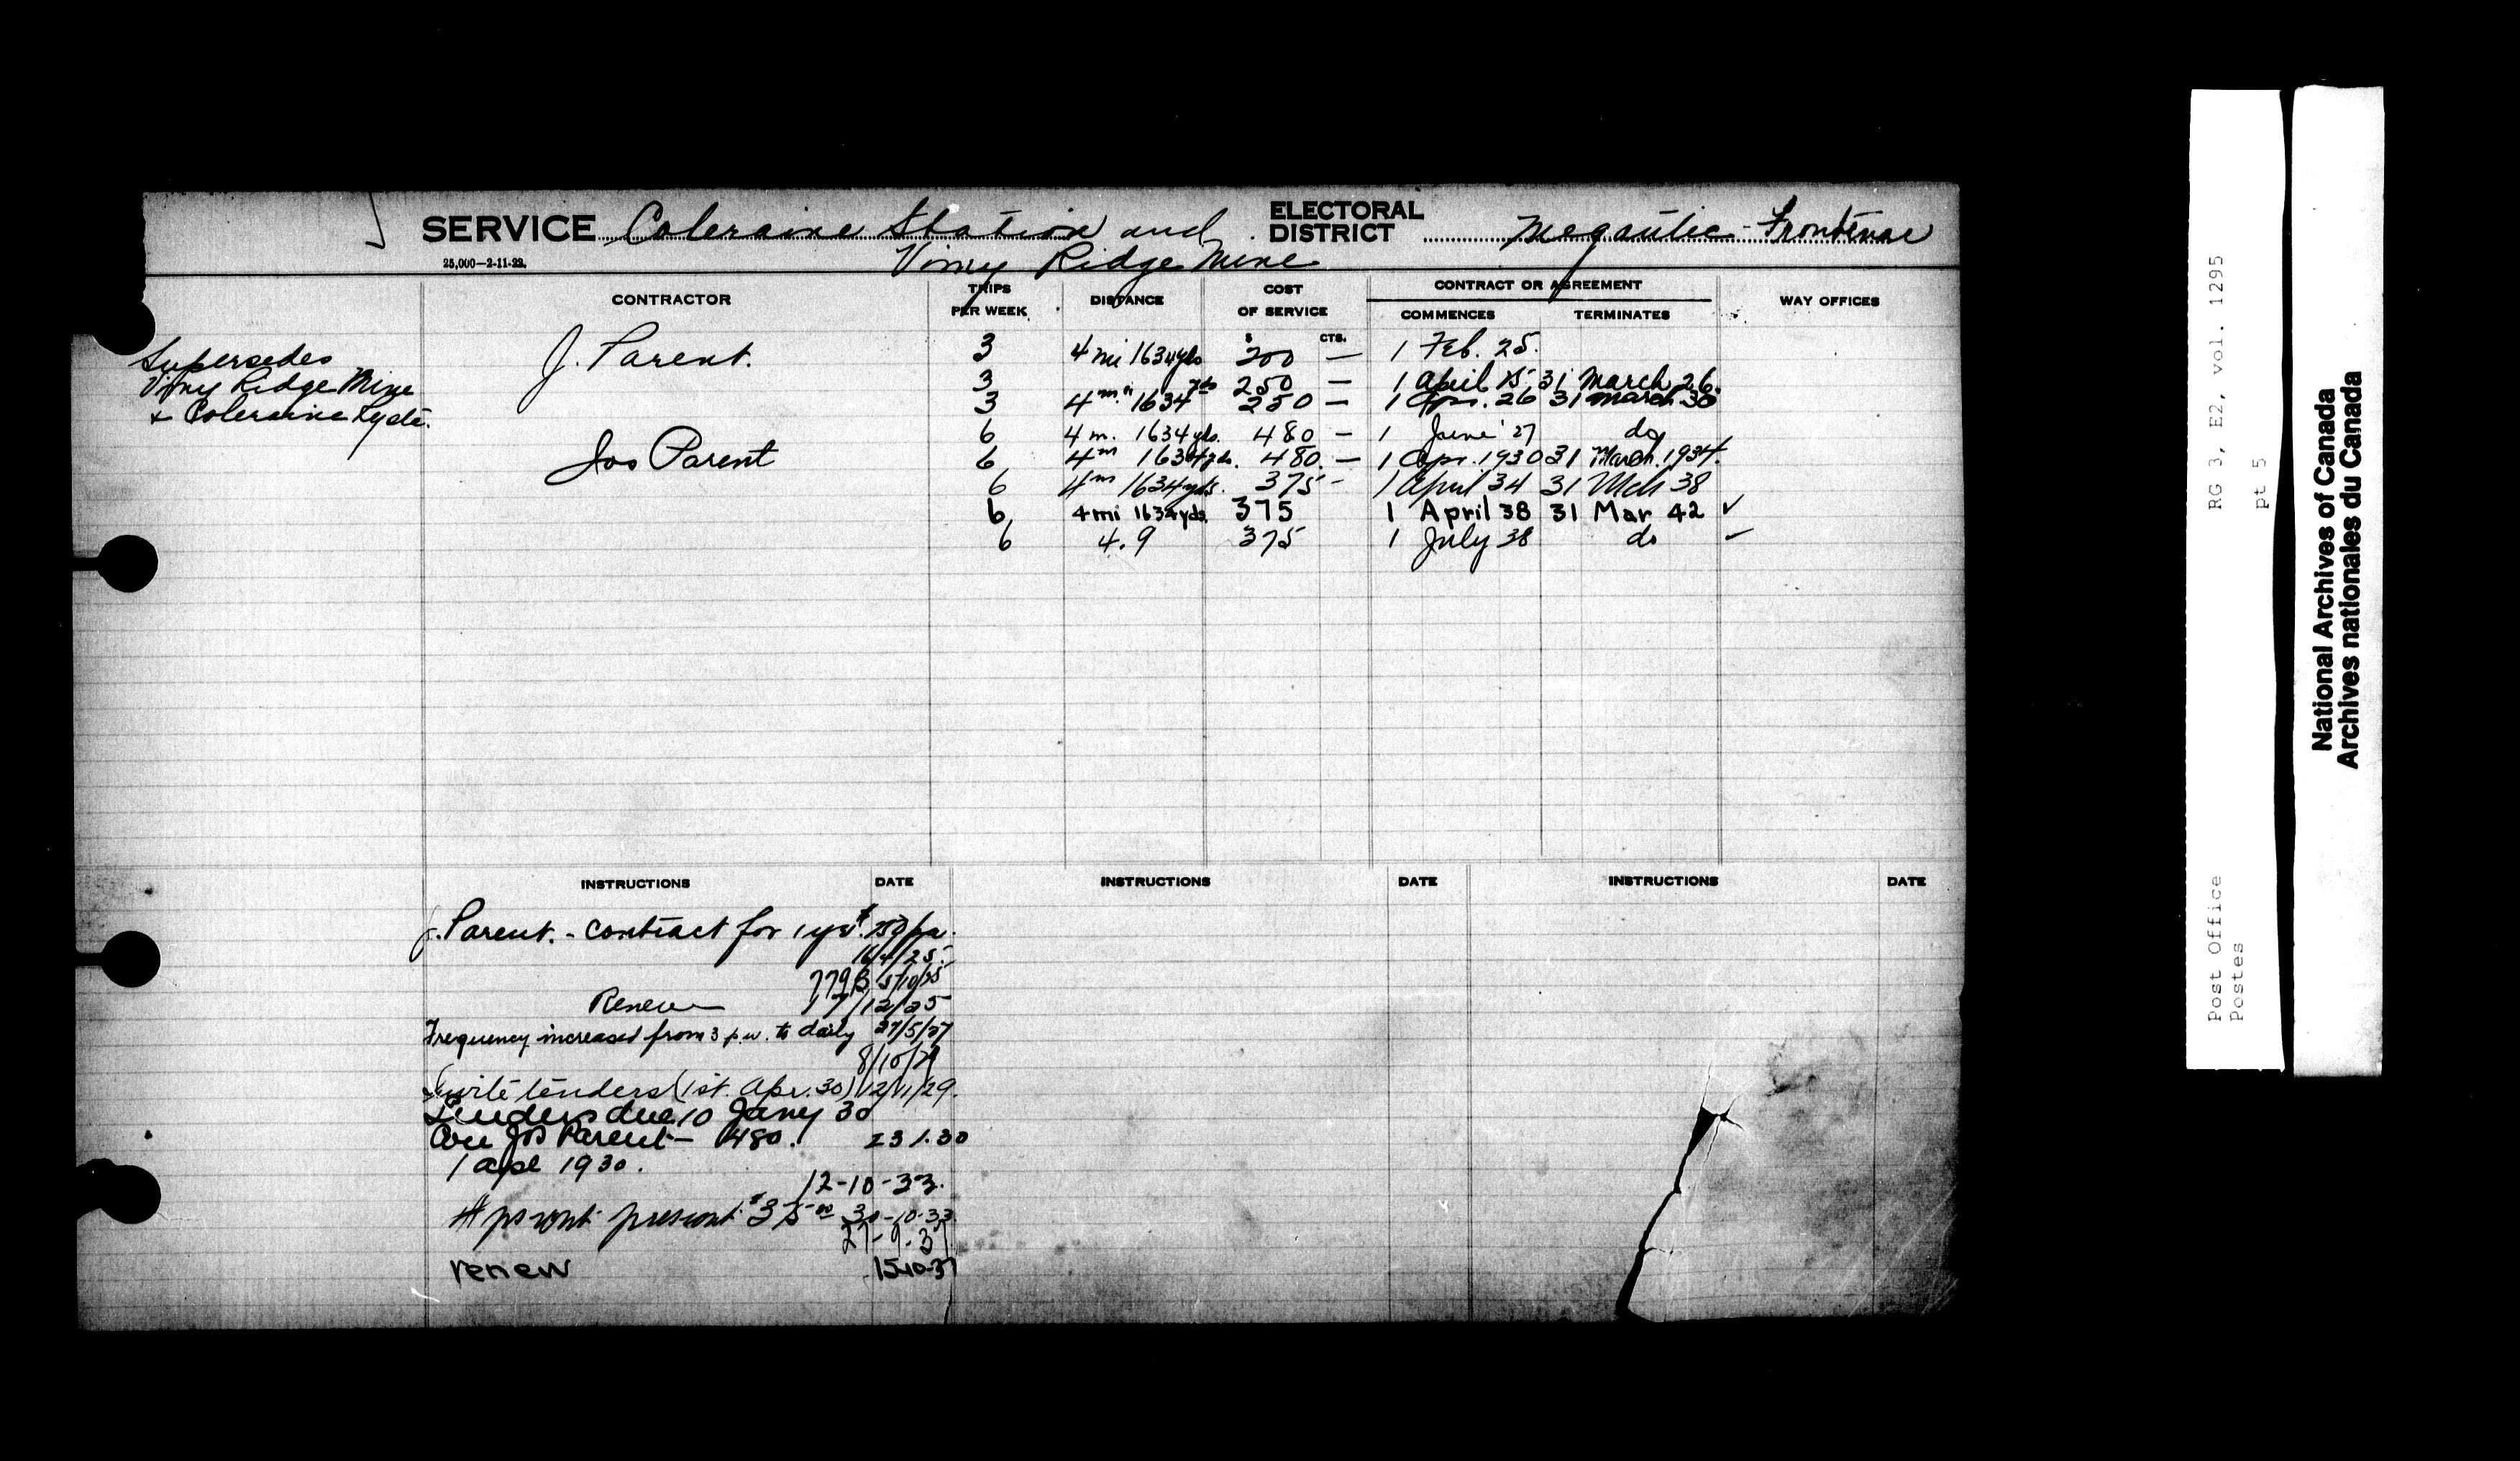 SERVICE Coleraine Station and Vimy Ridge Mine
ELECTORAL DISTRICT Megantic-Frontenac
25,000—2-11-22.
CONTRACTOR
TRIPS PER WEEK
DISTANCE
COST OF SERVICE
CONTRACT OR AGREEMENT
COMMENCES
TERMINATES
WAY OFFICES
$ CTS.
Supersedes
Vimy Ridge Mine
& Coleraine Ry
J. Parent. 3 4 mi 1634 yds 200 — 1 Feb. 25.
3 250 — 1 April 25 31 March 26.
3 4 m. 1634 yds 250 — 1 Apr. 26 31 March 30
6 4 m. 1634 yds. 480 — 1 June '27 do
Jos Parent 6 4 m 1634 yds. 480. — 1 Apr. 1930 31 March. 1934.
6 4 m 1634 yds. 375 - 1 April 34 31 Mch 38
6 4 mi 1634 yds. 375 1 April 38 31 Mar 42 ✓
6 4.9 375 1 July 38 do ✓
INSTRUCTIONS DATE INSTRUCTIONS DATE INSTRUCTIONS DATE
J. Parent. - contract for 1 yr. $250 pa.
16/4/25.
779B 5/10/25
Renew 17/12/25
Frequency increased from 3 p.w. to daily 27/5/27
8/10/29
Invite tenders (1st. Apr. 30) 12/11/29.
Tenders due 10 Jany 30
Jos Parent — 480. 23 1.30
1 apl 1930.
12-10-33.
present 30-10-33
27-9-37
renew 15-10-37
RG 3, E2, vol. 1295
pt 5
Post Office
Postes
National Archives of Canada
Archives nationales du Canada